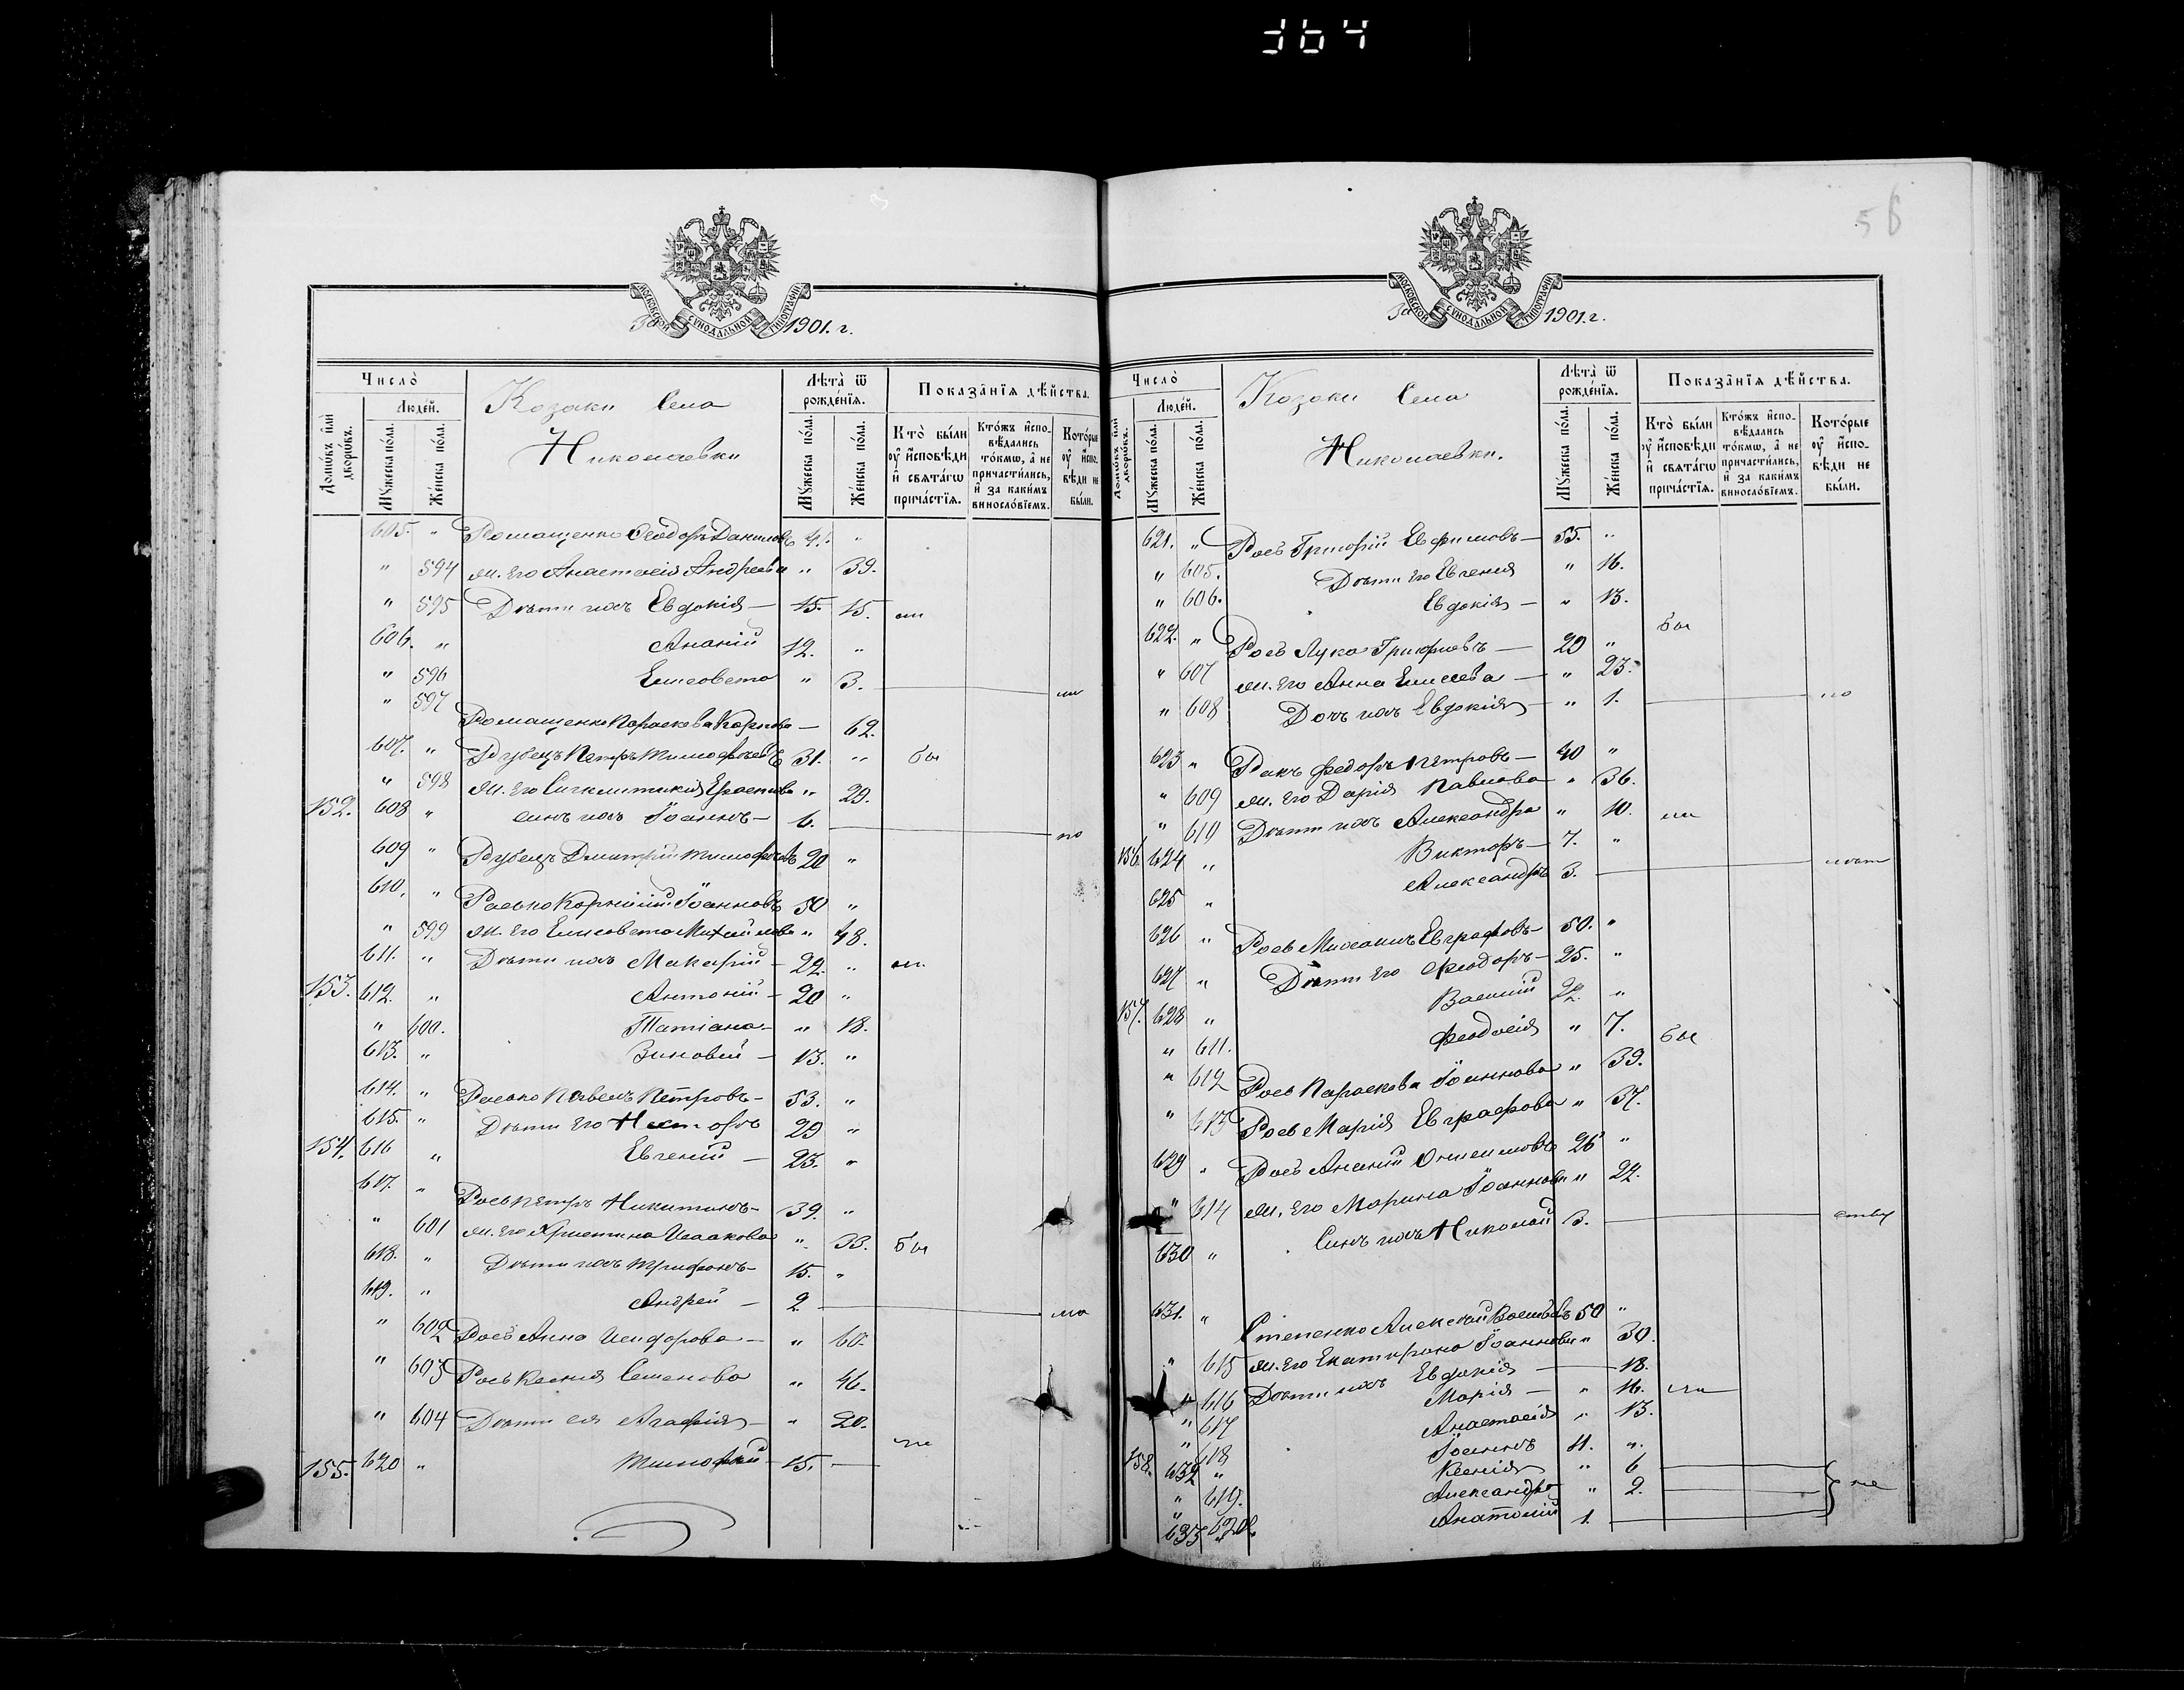 364
МОСКОВСКОЙ СУНОДАЛЬНОЙ ТИПОГРАФІИ
За 1901. г.
Число̀
Людéй.
Домѡ́въ и҆лѝ дворѡ́въ.
Мꙋ́жеска пóла.
Жéнска пóла.
Козаки Села
Николаевки
Лѣ́та ѿ рождéнїѧ.
Мꙋ́жеска пóла.
Жéнска пóла.
Показа̂нїѧ дѣ́йства.
Ктò бы́ли ᲂу҆ и҆́сповѣди и҆ свѧтáгѡ причáстїѧ.
Ктóжъ и҆спо-вѣ́дались тóкмѡ, а҆ не причасти́лись, и҆ за каки́мъ винослóвїемъ.
Котóрые ᲂу҆ и҆спо-вѣ́ди не бы́ли.
605. " Ромащенко Ѳеодоръ Даниловъ 41. "
" 594 ж. его Анастасія Андреева " 39.
" 595 Дѣти ихъ Евдокія — 15. 15. ли
606. " Ананій 12. "
" 596 Елисавета " 3.
" 597 Ромащенко Параскева Карпова — 62.
607. " Рубецъ Петръ Тимофѣевъ 31. " бы
" 598 ж. его Синклитикія " 29.
152. 608 " сынъ ихъ Іоаннъ — 6. не
609 " Рубецъ Дмитрій Тимофѣевъ 20 "
610. " Расько Корнилій Іоанновъ 50 "
" 599 ж. его Елисавета Михаилова " 48.
611. " Дѣти ихъ Макарій — 22. " ли
153. 612. " Антоній — 20 "
" 600. Татіана — " 18.
613. " Зиновій — 13. "
614. " Расько Павелъ Петровъ — 53. "
615. " Дѣти его Несторъ 29 "
154. 616 " Евгеній — 23. "
617. " Рось Петръ Никитинъ — 39. "
" 601 ж. его Христина Исаакова " 33. бы
618. " Дѣти ихъ Трифонъ — 15. "
619. " Андрей — 2
" 602 Рось Анна Исидорова — " 60.
" 603 Рось Ксенія Семенова " 46.
" 604 Дѣти ея Агафія — " 20.
155. 620 " Тимофей — 15. —
56
МОСКОВСКОЙ СУНОДАЛЬНОЙ ТИПОГРАФІИ
За 1901. г.
Число̀
Людéй.
Домѡ́въ и҆лѝ дворѡ́въ.
Мꙋ́жеска пóла.
Жéнска пóла.
Козаки Села
Николаевки.
Лѣ́та ѿ рождéнїѧ.
Мꙋ́жеска пóла.
Жéнска пóла.
Показа̂нїѧ дѣ́йства.
Ктò бы́ли ᲂу҆ и҆́сповѣди и҆ свѧтáгѡ причáстїѧ.
Ктóжъ и҆спо-вѣ́дались тóкмѡ, а҆ не причасти́лись, и҆ за каки́мъ винослóвїемъ.
Котóрые ᲂу҆ и҆спо-вѣ́ди не бы́ли.
621. " Рось Григорій Евфимовъ — 55. "
" 605. Дѣти его Евгенія " 16.
" 606. Евдокія — " 13.
622. " Рось Лука Григорьевъ — 20 " бы
" 607 ж. его Анна Елисеева — " 23.
" 608 Дочь ихъ Евдокія — " 1.
623 " Ракъ Ѳедоръ Петровъ — 40 "
" 609 ж. его Дарія Павлова " 36.
" 610 Дѣти ихъ Александра " 10. ли
156. 624 " Викторъ — 7. "
625 " Александръ 3.
626 " Рось Михаилъ Евграфовъ — 50. "
627 " Дѣти его Ѳеодоръ — 25. "
157. 628 " Василій 22. "
" 611. Феодосія " 7. бы
" 612 Рось Параскева Іоаннова " 39.
" 613 Рось Марія Евграфова " 37.
629 " Рось Ананій Онисимовъ 26 "
" 614 ж. его Марина Іоаннова " 22.
630 " Сынъ ихъ Николай 3.
631. " Степенко Алексѣй Васильевъ 50 "
" 615 ж. его Екатерина Іоаннова " 30.
" 616 Дѣти ихъ Евдокія — 18.
" 617 Марія — " 16. ли
" 618 Анастасія " 13.
158. 632 " Іоаннъ 11. "
" 619. Ксенія " 6
" 620. Александра " 2. не
633 Анатолій 1.